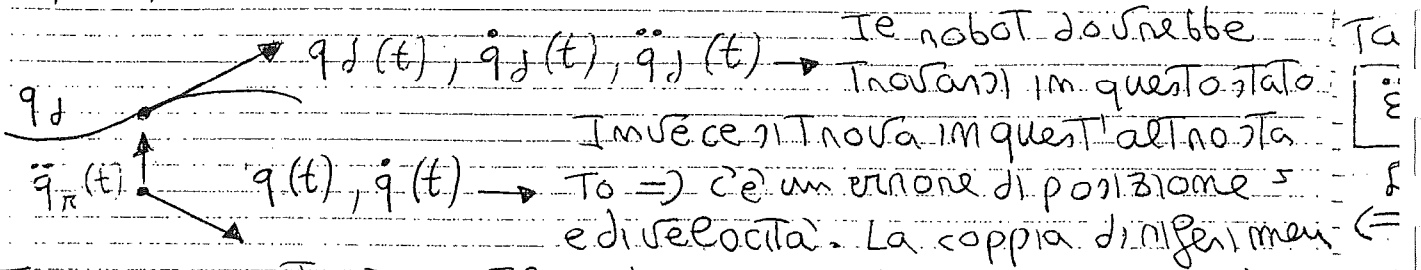 q_d(t), q̇_d(t), q̈_d(t) → Il robot dovrebbe
trovarsi in questo stato
q_d
Invece si trova in quest'altro sta
q̈_r(t) q(t), q̇(t) → to => c'è un errore di posizione
e di velocità. La coppia di riferimen
Ta